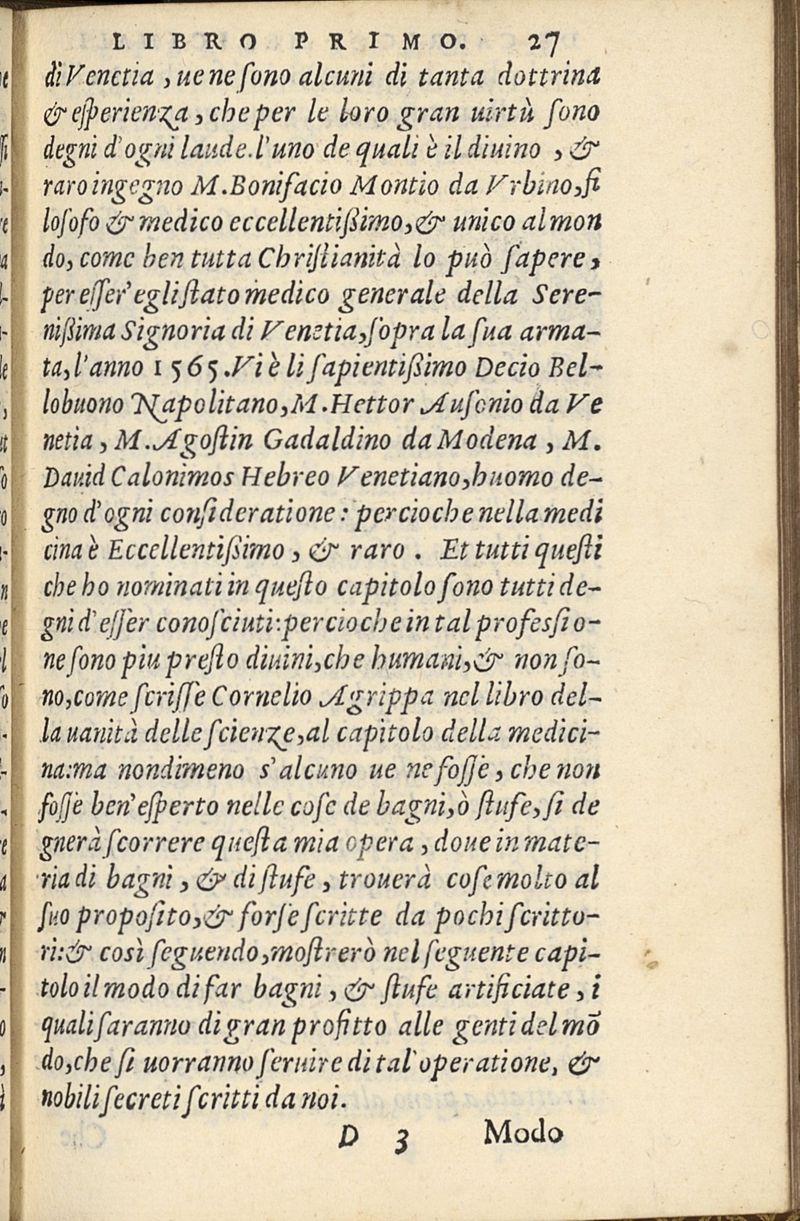 LIBRO PRIMO. 27
di Venetia, ue ne sono alcuni di tanta dottrina
& esperienza, che per le loro gran uirtù sono
degni d'ogni laude. l'uno de quali è il diuino, &
raro ingegno M. Bonifacio Montio da Vrbino, fi
losofo & medico eccellentißimo, & unico al mon
do, come ben tutta Christianità lo può sapere,
per esser' egli stato medico generale della Sere-
nißima Signoria di Venetia, sopra la sua arma-
ta, l'anno 1565. Vi è li sapientißimo Decio Bel-
lobuono Napolitano, M. Hettor Ausonio da Ve
netia, M. Agostin Gadaldino da Modena, M.
Dauid Calonimos Hebreo Venetiano, huomo de-
gno d'ogni consideratione: percioche nella medi
cina è Eccellentißimo, & raro. Et tutti questi
che ho nominati in questo capitolo sono tutti de-
gni d'esser conosciuti: percioche in tal professio-
ne sono piu presto diuini, che humani, & non so-
no, come scrisse Cornelio Agrippa nel libro del-
la uanità delle scienze, al capitolo della medici-
na: ma nondimeno s'alcuno ue ne fosse, che non
fosse ben' esperto nelle cose de bagni, ò stufe, si de
gnerà scorrere questa mia opera, doue in mate-
ria di bagni, & di stufe, trouerà cose molto al
suo proposito, & forse scritte da pochi scritto-
ri: & così seguendo, mostrerò nel seguente capi-
tolo il modo di far bagni, & stufe artificiate, i
quali saranno di gran profitto alle genti del mõ
do, che si uorranno seruire di tal' operatione, &
nobili secreti scritti da noi.
D 3 Modo